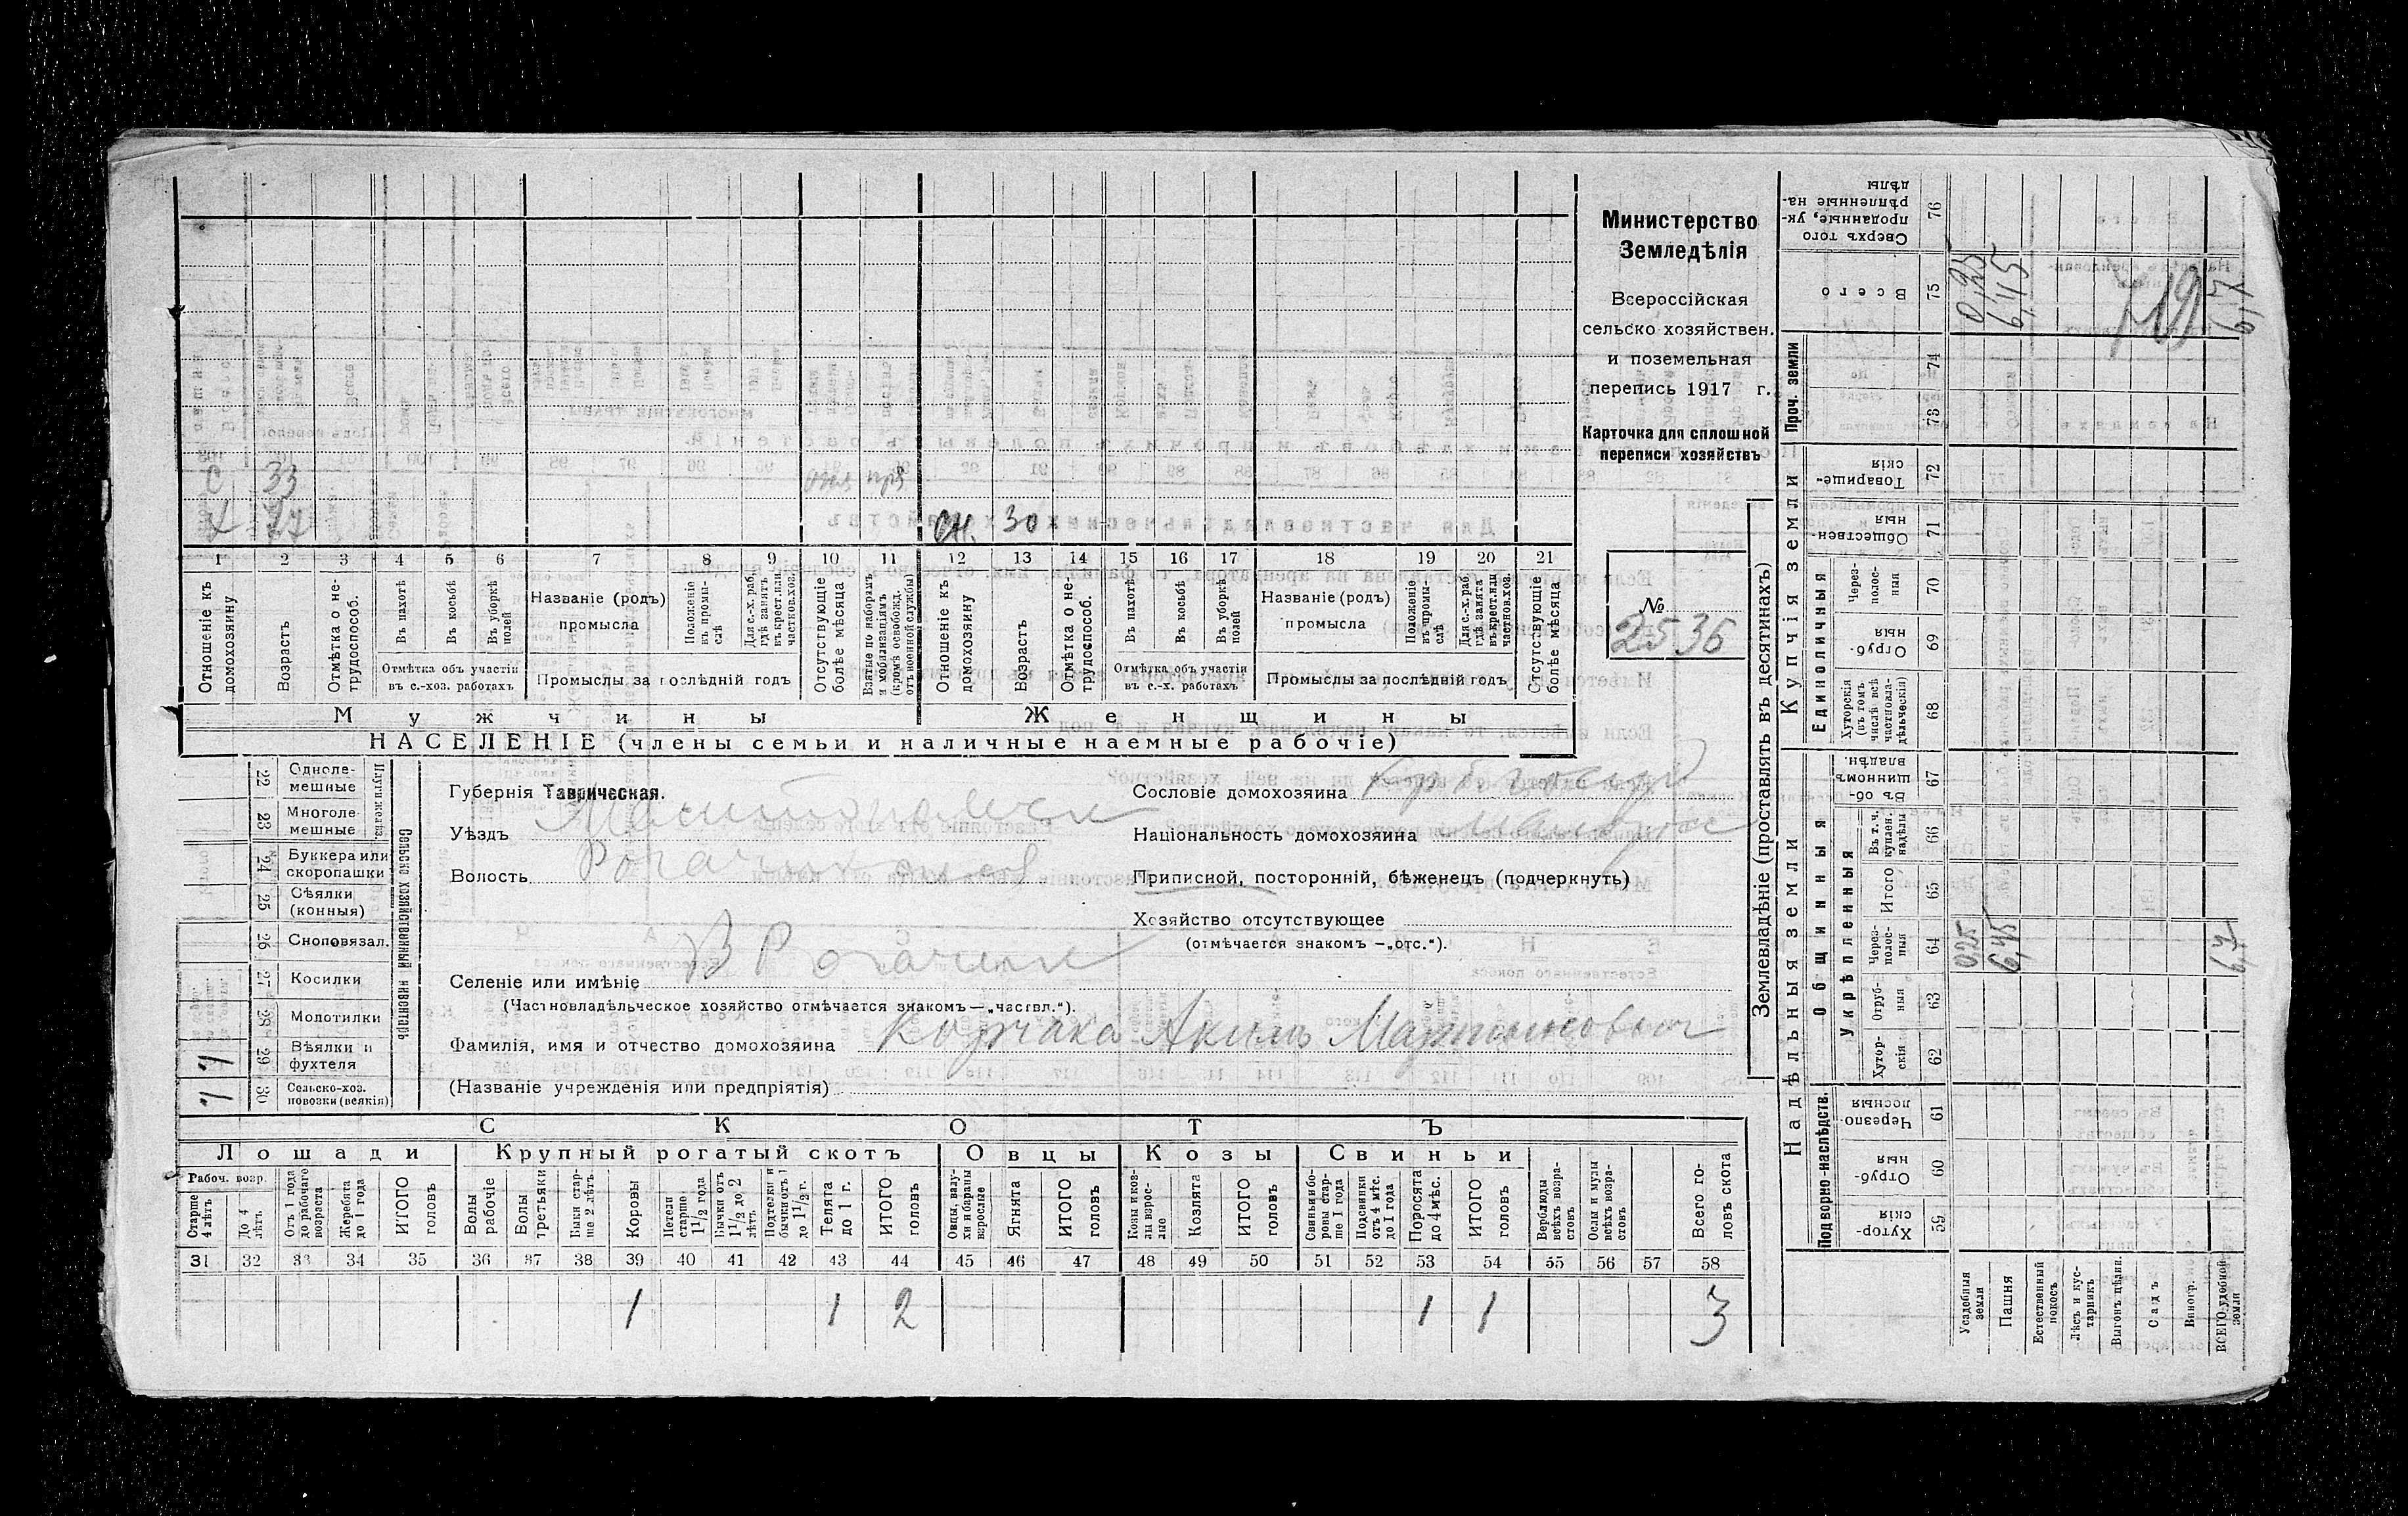 Министерство
Земледѣлія
Всероссійская
сельско хозяйствен.
и поземельная
перепись 1917 г.
Карточка для сплошной
переписи хозяйствъ
№
2536
С 33
Х 27
сн. 30
1 2 3 4 5 6 7 8 9 10 11 12 13 14 15 16 17 18 19 20 21
Отношеніе къ домохозяину
Возрастъ
Отмѣтка о не-трудоспособ.
Въ пахотѣ
Въ косьбѣ
Въ уборкѣ полей
Отмѣтка объ участіи
въ с.-хоз. работахъ
Названіе (родъ)
промысла
Положеніе въ промы-слѣ
Для с.-х. раб. гдѣ занятъ въ крест. или частнов. хоз.
Промыслы за послѣдній годъ
Отсутствующіе болѣе мѣсяца
Взятые по наборамъ и мобилизаціямъ (кромѣ освобожд. отъ военной службы)
Отношеніе къ домохозяину
Возрастъ
Отмѣтка о не-трудоспособ.
Въ пахотѣ
Въ косьбѣ
Въ уборкѣ полей
Отмѣтка объ участіи
въ с.-х. работахъ
Названіе (родъ)
промысла
Положеніе въ промы-слѣ
Для с.-х. раб. гдѣ занята въ крест. или частнов. хоз.
Промыслы за послѣдній годъ
Отсутствующіе болѣе мѣсяца
Мужчины Женщины
НАСЕЛЕНІЕ (члены семьи и наличные наемные рабочіе)
Сельско хозяйственный инвентарь
Плуги желѣз.
22 Одноле-мешные
23 Многоле-мешные
24 Буккера или скоропашки
25 Сѣялки (конныя)
26 Сноповязал.
27 Косилки
28 Молотилки
29 Вѣялки и фухтеля 1
30 Сельско-хоз. повозки (всякія) 1
Губернія Таврическая.
Уѣздъ Мелитопольск
Волость Рогачикская
Селеніе или имѣніе В Рогачик
(Частновладѣльческое хозяйство отмѣчается знакомъ—„частвл.“).
Фамилія, имя и отчество домохозяина Корчака Акимъ Мартынович
(Названіе учрежденія или предпріятія)
Сословіе домохозяина
Національность домохозяина малорос
Приписной, посторонній, бѣженецъ (подчеркнуть)
Хозяйство отсутствующее
(отмѣчается знакомъ —„отс.“).
СКОТЪ
Лошади Крупный рогатый скотъ Овцы Козы Свиньи
Рабоч. возр.
Старше 4 лѣтъ
До 4 лѣтъ
Отъ 1 года до рабочаго возраста
Жеребята до 1 года
ИТОГО головъ
Волы рабочіе
Волы третьяки
Быки стар-ше 2 лѣтъ
Коровы
Нетели старше 1 1/2 года
Бычки отъ 1 1/2 до 2 лѣтъ
Подтелки и бычки отъ 1 до 1 1/2 г.
Телята до 1 г.
ИТОГО головъ
Овцы, валу-хи и бараны взрослые
Ягнята
ИТОГО головъ
Козы и коз-лы взрос-лые
Козлята
ИТОГО головъ
Свиньи и бо-ровы стар-ше 1 года
Подсвинки отъ 4 мѣс. до 1 года
Поросята до 4 мѣс.
ИТОГО головъ
Верблюды всѣхъ возра-стовъ
Ослы и мулы всѣхъ возра-стовъ
Всего го-ловъ скота
31 32 33 34 35 36 37 38 39 40 41 42 43 44 45 46 47 48 49 50 51 52 53 54 55 56 57 58
1 1 2 1 1 3
Землевладѣніе (проставлять въ десятинахъ)
Надѣльныя земли
Купчія земли
Проч. земли
Подворно-наслѣдств.
Общинныя
Укрѣпленныя
Единоличныя
59 Хутор-скія
60 Отруб-ныя
61 Черезпо-лосныя
62 Хутор-скія
63 Отруб-ныя
64 Через-полос-ныя
65 Итого
66 Въ т. ч. куплен. надѣлы
67 Въ об-щинномъ владѣн.
68 Хуторскія (въ томъ числѣ всѣ частновла-дѣльческія)
69 Отруб-ныя
70 Через-полос-ныя
71 Обществен-ныя
72 Товарище-скія
73
74
75 Всего
76 Сверхъ того проданные, ук-рѣпленные на-дѣлы
Усадебныя земли 0,25
Пашня 6,45 6,45
Естественный покосъ
Лѣсъ и кус-тарникъ
Выгонъ цѣлин.
Садъ
Виногр.
ВСЕГО удобной земли 6,7 6,7